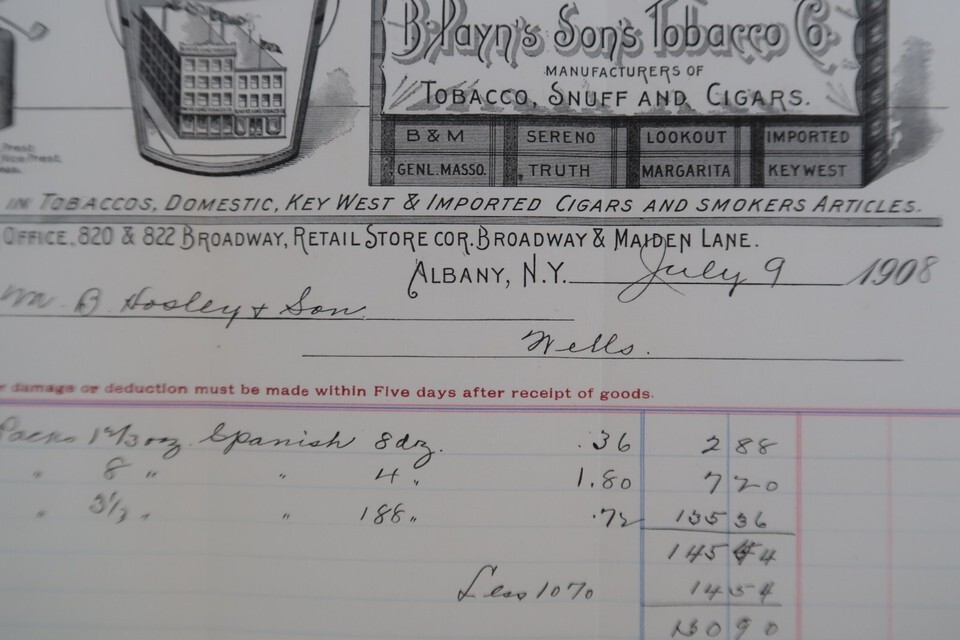 B. Payn's Son's Tobacco Co.
MANUFACTURERS OF
TOBACCO, SNUFF AND CIGARS.
B & M SERENO LOOKOUT IMPORTED
GENL. MASSO. TRUTH MARGARITA KEY WEST
Prest.
Vice Prest.
IN TOBACCOS, DOMESTIC, KEY WEST & IMPORTED CIGARS AND SMOKERS ARTICLES.
OFFICE, 820 & 822 BROADWAY, RETAIL STORE COR. BROADWAY & MAIDEN LANE.
ALBANY, N.Y. July 9 1908
Wm. B. Hosley & Son
Wells.
damage or deduction must be made within Five days after receipt of goods.
Packs 1 2/3 oz. Spanish 8 dz. .36 2 88
" 8 " " 4 " 1.80 7 20
" 3 1/2 " " 188 " .72 135 36
145 44
Less 10% 14 54
130 90